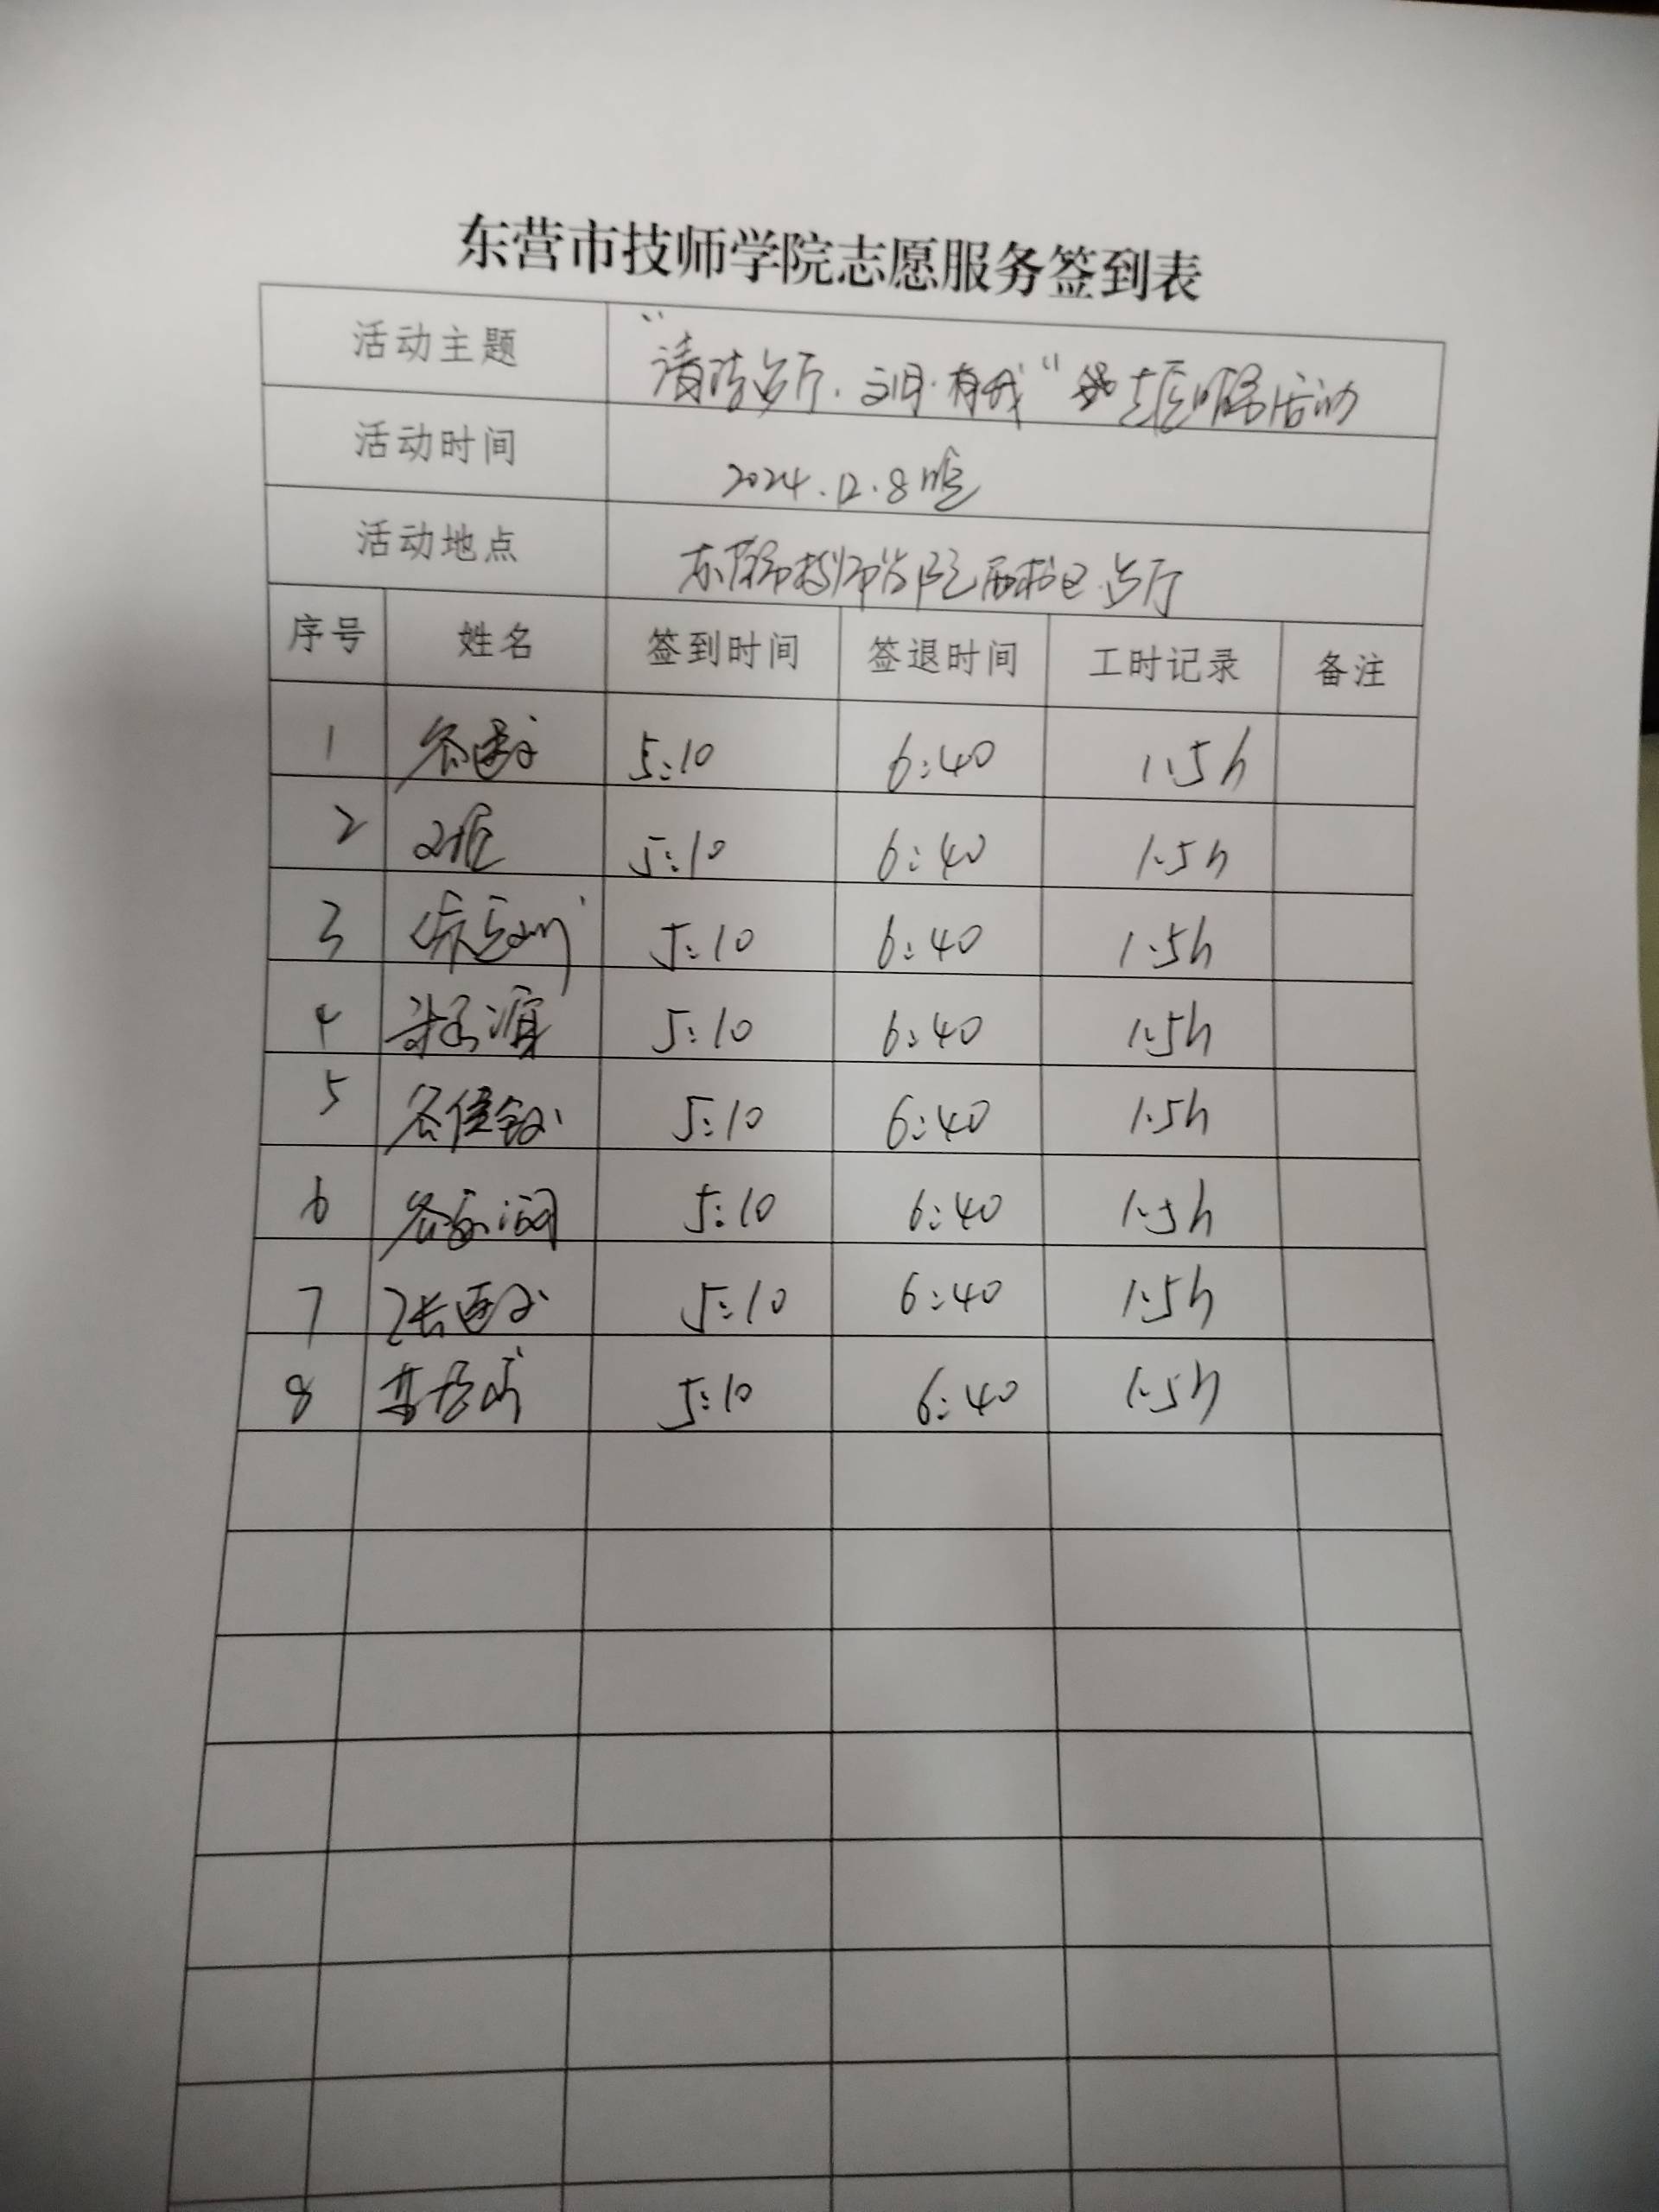 东营市技师学院志愿服务签到表
活动主题 "清洁餐厅.文明.有我" 志愿服务活动
活动时间 2024.12.8晚
活动地点 东营市技师学院西校区餐厅
序号 姓名 签到时间 签退时间 工时记录 备注
1 5:10 6:40 1.5h
2 5:10 6:40 1.5h
3 5:10 6:40 1.5h
4 5:10 6:40 1.5h
5 5:10 6:40 1.5h
6 5:10 6:40 1.5h
7 5:10 6:40 1.5h
8 5:10 6:40 1.5h